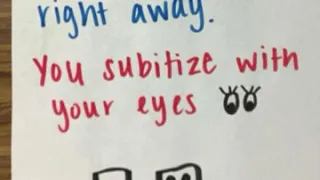 right away.
You subitize with
your eyes